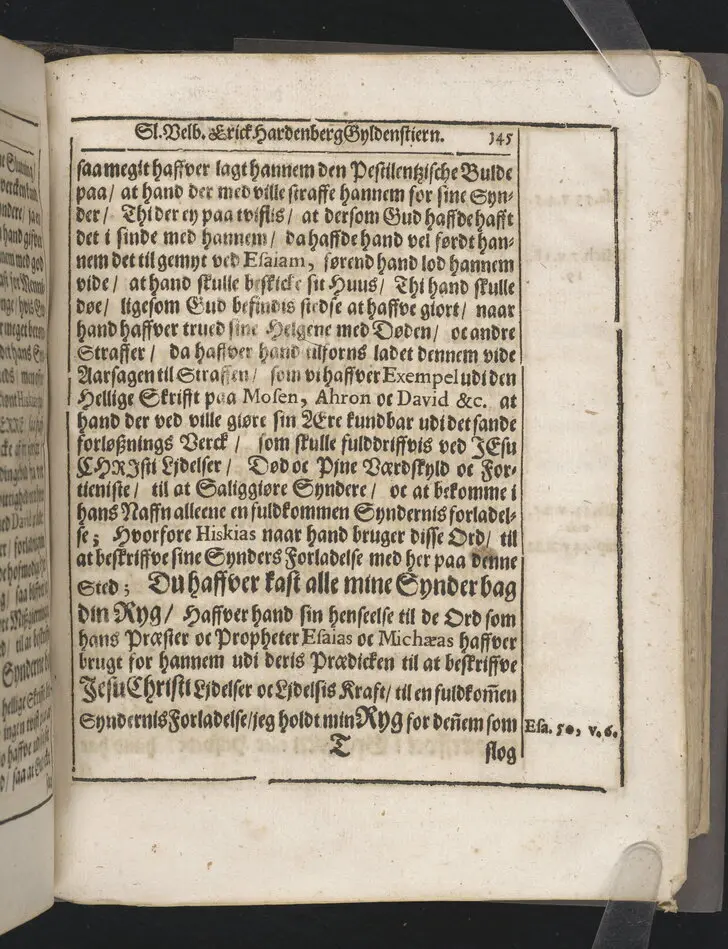 Sl. Velb. Erick Hardenberg Gyldenstiern. 145
saa megit haffver lagt hannem den Pestilentzische Bulde
paa/ at hand der med ville straffe hannem for sine Syn-
der/ Thi der ey paa tvislis/ at dersom Gud haffde hafft
det i sinde med hannem/ da haffde hand vel førdt han-
nem det til gemyt ved Esaiam, førend hand lod hannem
vide/ at hand skulle beskicke sit Huus/ Thi hand skulle
døe/ ligesom Gud befindis stedse at haffve giort/ naar
hand haffver trued sine Helgene med Døden/ oc andre
Straffer/ da haffver hand tilforns ladet dennem vide
Aarsagen til Straffen/ som vi haffver Exempel udi den
Hellige Skrifft paa Mosen, Ahron oc David &c. at
hand der ved ville giøre sin Ære kundbar udi det sande
forløßnings Verck/ som skulle fulddriffvis ved JEsu
CHRJsti Ljdelser/ Død oc Pjne Værdskyld oc For-
tieniste/ til at Saliggiøre Syndere/ oc at bekomme i
hans Naffn alleene en fuldkommen Syndernis forladel-
se; Hvorfore Hiskias naar hand bruger disse Ord/ til
at beskriffve sine Synders Forladelse med her paa denne
Sted; Du haffver kast alle mine Synder bag
din Ryg/ Haffver hand sin henseelse til de Ord som
hans Præster oc Propheter Esaias oc Michæas haffver
brugt for hannem udi deris Prædicken til at beskriffve
Jesu Christi Ljdelser oc Ljdelsis Kraft/ til en fuldkom̄en
Syndernis Forladelse/ jeg holdt min Ryg for den̄em som
Esa. 50, v. 6.
T slog